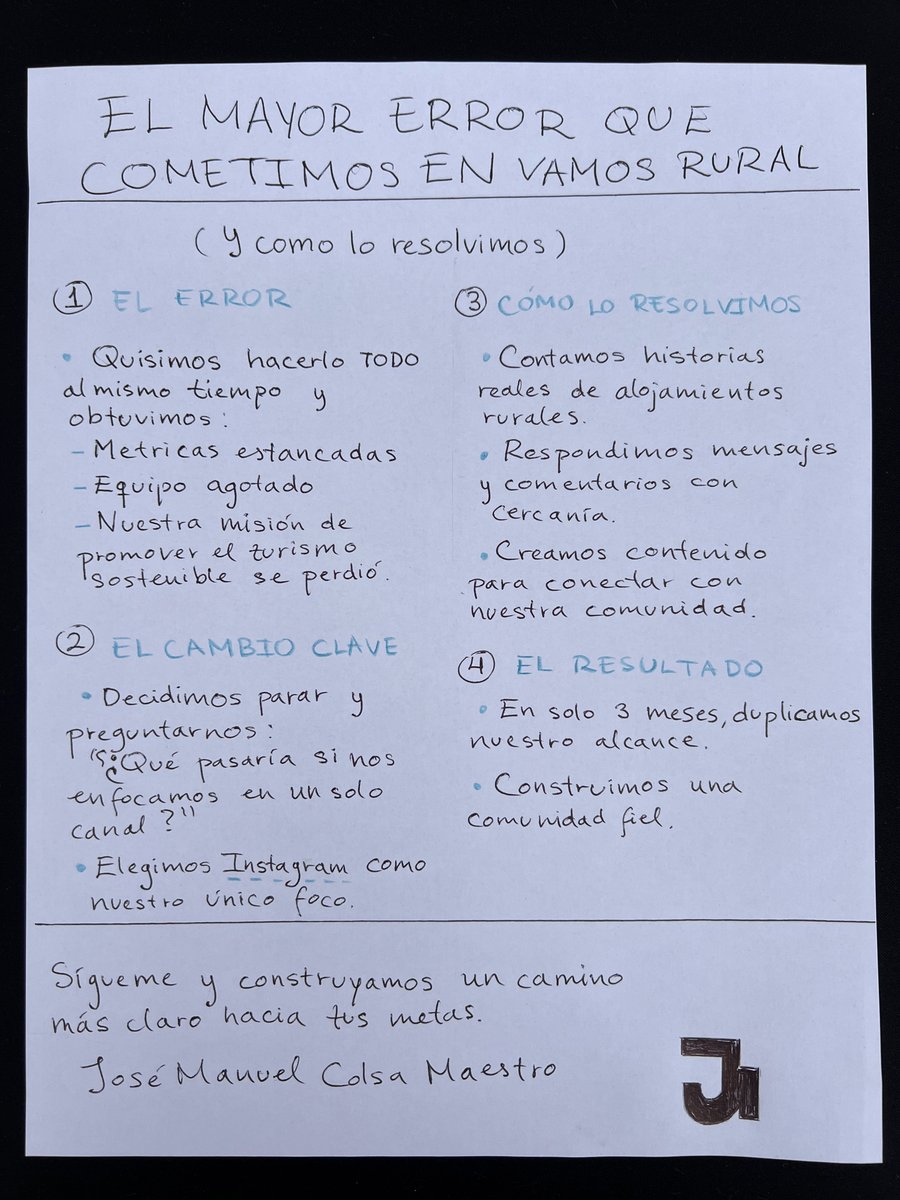 EL MAYOR ERROR QUE
COMETIMOS EN VAMOS RURAL
(Y como lo resolvimos)
1 EL ERROR
• Quisimos hacerlo TODO
al mismo tiempo y
obtuvimos:
- Metricas estancadas
- Equipo agotado
- Nuestra misión de
promover el turismo
sostenible se perdió.
2 EL CAMBIO CLAVE
• Decidimos parar y
preguntarnos:
"¿Qué pasaría si nos
enfocamos en un solo
canal?"
• Elegimos Instagram como
nuestro único foco.
3 CÓMO LO RESOLVIMOS
• Contamos historias
reales de alojamientos
rurales.
• Respondimos mensajes
y comentarios con
cercanía.
• Creamos contenido
para conectar con
nuestra comunidad.
4 EL RESULTADO
• En solo 3 meses, duplicamos
nuestro alcance.
• Construimos una
comunidad fiel.
Sígueme y construyamos un camino
más claro hacia tus metas.
José Manuel Colsa Maestro